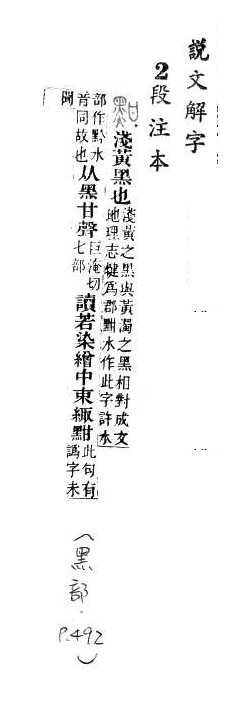 說文解字
2段注本
淺黃黑也淺黃之黑與黃濁之黑相對成文
地理志犍爲郡黚水作此字許水
部作黔水从黑甘聲巨淹切讀若染繒中束緅黚此句有
音同故也七部譌字未
聞
(黑部·
P.492)